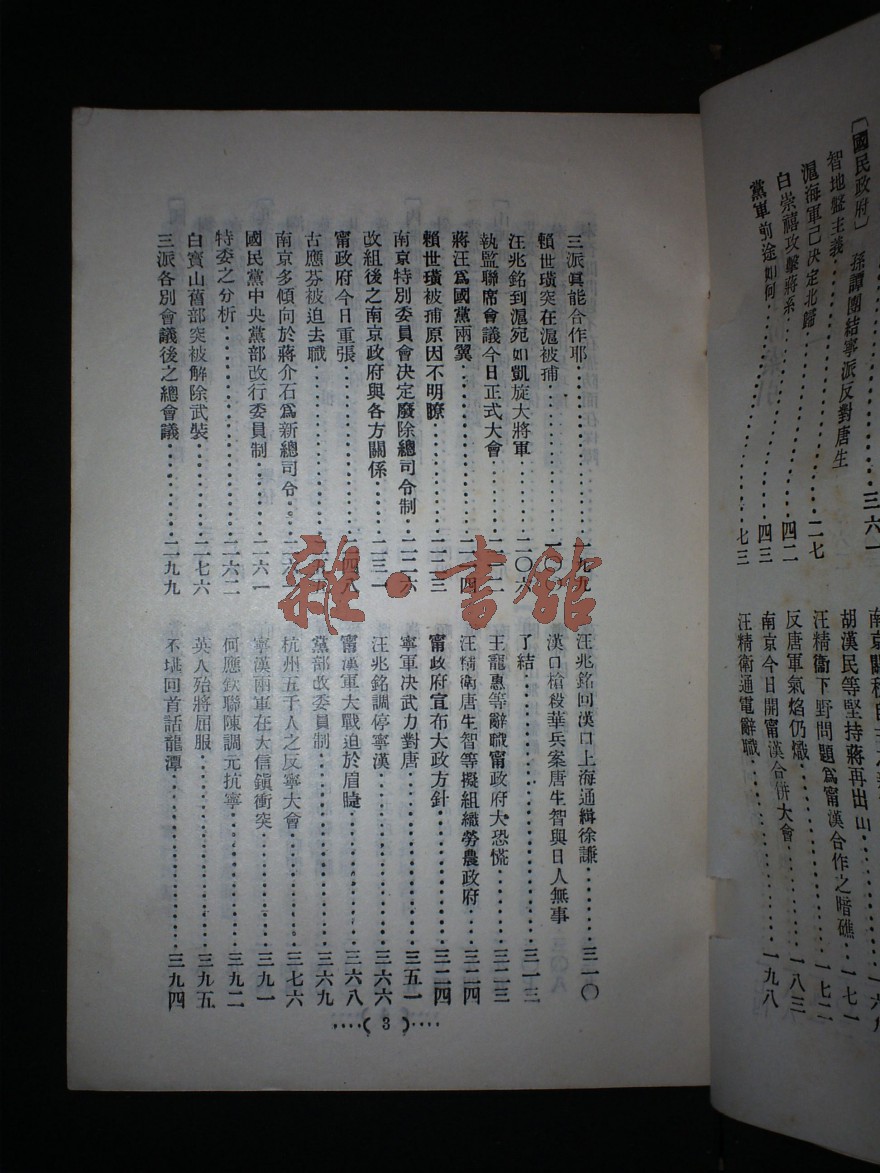 〔國民政府〕 孫譚團結寧派反對唐生
智地盤主義⋯⋯三六一
滬海軍已決定北歸⋯⋯二七
白崇禧攻擊蔣系⋯⋯四二
黨軍前途如何⋯⋯四三
七三
胡漢民等堅持蔣再出山⋯⋯一六九
汪精衞下野問題爲甯漢合作之暗礁⋯⋯一七一
反唐軍氣焰仍熾⋯⋯一七二
南京今日開甯漢合併大會⋯⋯一八三
汪精衞通電辭職⋯⋯一九八
三派眞能合作耶⋯⋯一九九
賴世璜突在滬被捕
汪兆銘到滬宛如凱旋大將軍⋯⋯二〇六
執監聯席會議今日正式大會
蔣汪爲國黨兩翼
賴世璜被捕原因不明瞭⋯⋯二二三
南京特別委員會決定廢除總司令制⋯⋯二二六
改組後之南京政府與各方關係⋯⋯二三一
甯政府今日重張⋯⋯二四八
古應芬被迫去職
南京多傾向於蔣介石爲新總司令⋯⋯二六一
國民黨中央黨部改行委員制⋯⋯二六一
特委之分析⋯⋯二六二
白寶山舊部突被解除武裝⋯⋯二七六
三派各別會議後之總會議⋯⋯二九九
汪兆銘回漢口上海通緝徐謙⋯⋯三一〇
漢口槍殺華兵案唐生智與日人無事
了結⋯⋯三一三
王寵惠等辭職甯政府大恐慌⋯⋯三二三
汪精衞唐生智等擬組織勞農政府⋯⋯三二四
甯政府宣布大政方針⋯⋯三二四
寧軍決武力對唐⋯⋯三五一
汪兆銘調停寧漢⋯⋯三六六
甯漢軍大戰迫於眉睫⋯⋯三六八
黨部改委員制⋯⋯三六九
杭州五千人之反寧大會⋯⋯三七六
寧漢兩軍在大信鎭衝突⋯⋯三九一
何應欽聯陳調元抗寧⋯⋯三九二
英人殆將屈服⋯⋯三九五
不堪回首話龍潭⋯⋯三九四
⋯⋯( 3 )⋯⋯
雜·書館